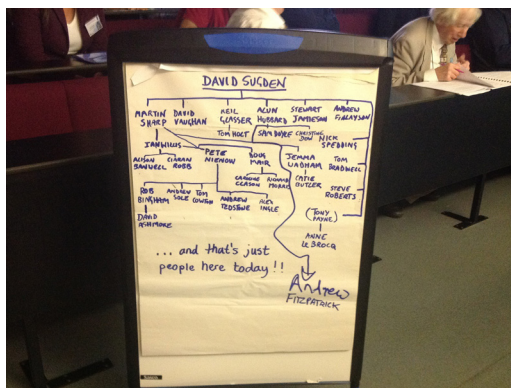 DAVID SUGDEN
MARTIN SHARP
DAVID VAUGHAN
NEIL GLASSER
ALUN HUBBARD
STEWART JAMIESON
ANDREW FINLAYSON
TOM HOLT
SAM DOYLE
CHRISTINE DOW
NICK SPEDDING
IAN WILLIS
PETE NIENOW
DOUG MAIR
JEMMA WADHAM
TOM BRADWELL
ALISON BANWELL
CIARAN ROBB
CAROLINE CLASON
RICHARD MORRIS
CATIE BUTLER
STEVE ROBERTS
ROB BINGHAM
ANDREW SOLE
TOM COWTON
ANDREW TEDSTONE
ALEX INGLE
(TONY PAYNE)
DAVID ASHMORE
ANNE LE BROCQ
... and that's just
people here today!!
Andrew
FITZPATRICK